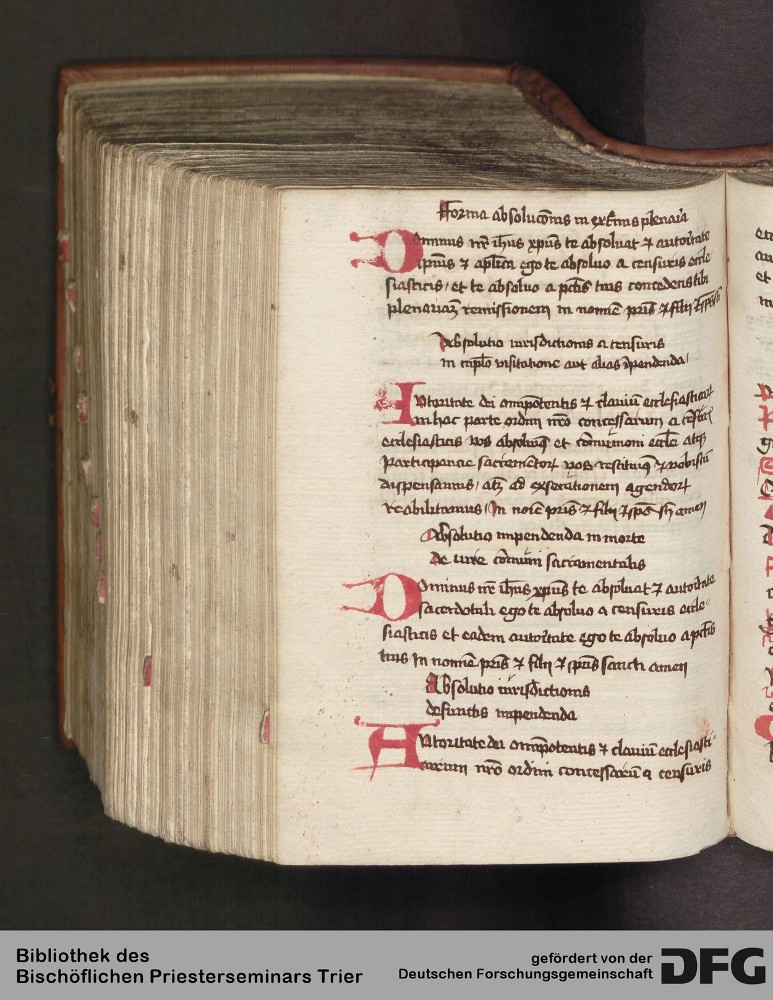 Forma absolucōnis in exᵗmis plenaria
Dominus nr̄ ihūs xpūs te absoluat ⁊ autoritate
ip̄ius ⁊ ap̄lica ego te absoluo a censuris eccle
siasticis / et te absoluo a pctīs tuis concedens tibi
plenariaꝫ remissionem in nomīe pr̄is ⁊ filij ⁊ sp̄s sci
Absolutio iurisdictionis a censuris
in cap̄lo visitatione aut alias īpendenda /
Autoritate dei omīpotentis ⁊ clauiū ecclesiasticaꝝ
in hac parte ordini nr̄o concessarum a cēsuris
ecclesiasticis vos absoluimꝰ et cōmunioni eccl̄ie atqꝫ
participacōe sacramētoꝝ vos restituimꝰ ⁊ vobiscū
dispensamus / ad exsecutionem agendoꝝ
reabilitamus / In noīe pr̄is ⁊ filij ⁊ sp̄s sc̄i amen
Absolutio impendenda in morte
de iure cōmuni sacramentalis
Dominus nr̄ ihūs xpūs te absoluat ⁊ autoritate
sacerdotali ego te absoluo a censuris eccle-
siasticis et eadem autoritate ego te absoluo a pctīs
tuis In nomīe pr̄is ⁊ filij ⁊ sp̄us sancti amen
Absolutio iurisdictionis
defunctis impendenda
Autoritate dei omīpotentis ⁊ clauiū ecclesiasti-
carum nr̄o ordini concessarū a censuris
Bibliothek des
Bischöflichen Priesterseminars Trier
gefördert von der
Deutschen Forschungsgemeinschaft
DFG